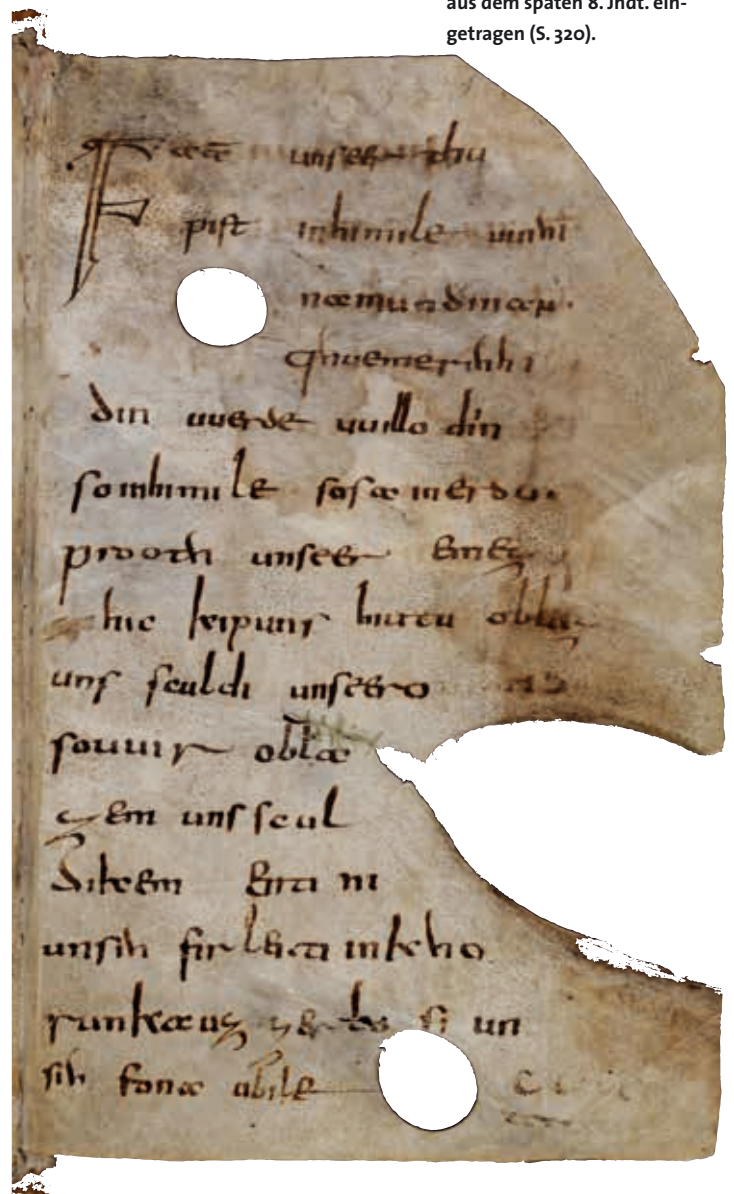 aus dem späten 8. Jhdt. ein-
getragen (S. 320).
Fat unseer thu
pist inhimile uuihi
namun dinan
qhuemerihhi
din uuerde uuillo diin
soinhimile sosa in erdu.
prooth unseer emez
hic kipuns hiutu oblaz
uns sculdi unseero
souuir obla
zem unsscul
dikem enti ni
unsih firleiti inkho
runka uzzer losi un
sih fona ubile